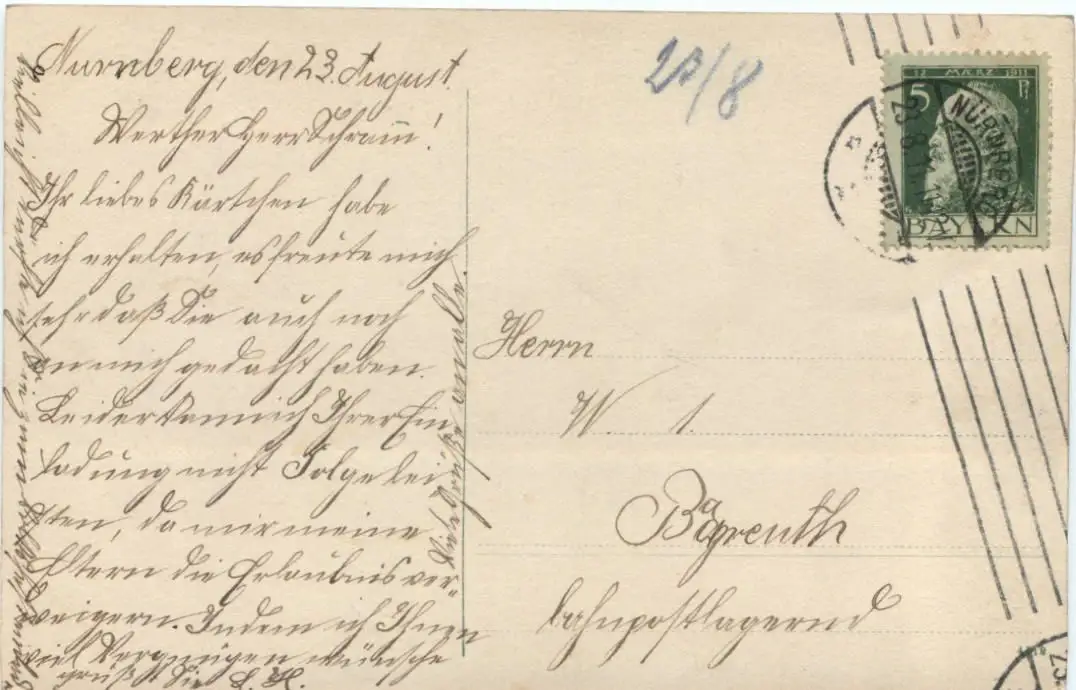 Nürnberg, den 23. August.
Werther Herr Schramm!
Ihr liebes Kärtchen habe
ich erhalten, es freute mich
sehr daß Sie auch noch
an mich gedacht haben.
Leider kann ich Ihrer Ein-
ladung nicht Folge lei-
sten, da mir meine
Eltern die Erlaubnis ver-
weigern. Indem ich Ihnen
viel Vergnügen wünsche
grüßt Sie L. H.
23/8
12 MÄRZ 1911
5 Pf
BAYERN
NÜRNBERG
23 8 11
Herrn
W. 1.
Bayreuth
bahnpostlagernd